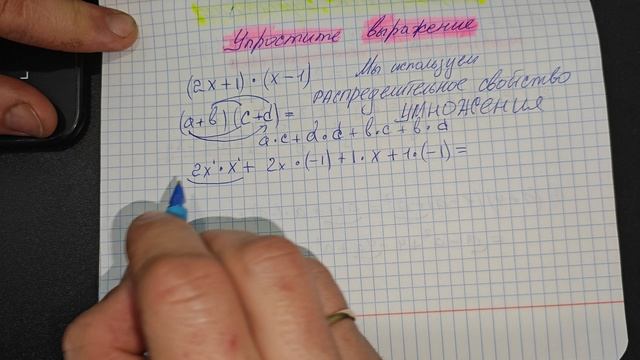 Упростите выражение
(2x+1)·(x-1) Мы используем
распределительное свойство
(a+b)(c+d)= умножения
a·c+d·d+b·c+b·d
2x¹·x¹+2x·(-1)+1·x+1·(-1)=